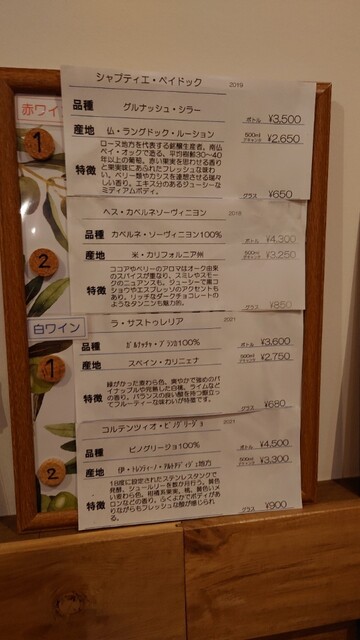 赤ワイ
1
シャプティエ・ペイドック 2019
品種 グルナッシュ・シラー ボトル ¥3,500
産地 仏・ラングドック・ルーション 500ml デキャンタ ¥2,650
特徴 ローヌ地方を代表する銘醸生産者、南仏
ペイ・オックで造る、平均樹齢30～40
年以上の葡萄。赤い果実を思わせる香り
と果実味にあふれたフレッシュな味わ
い。ベリー類やカシスを連想させる瑞々
しい香り。エキス分のあるジューシーな
ミディアムボディ。
グラス ¥650
2
ヘス・カベルネソーヴィニヨン 2018
品種 カベルネ・ソーヴィニヨン100% ボトル ¥4,300
産地 米・カリフォルニア州 500ml デキャンタ ¥3,250
特徴 ココアやベリーのアロマはオーク由来
のスパイスが重なり、スミレやスモーク
のニュアンスも。ジューシーで黒コ
ショウやエスプレッソのアクセントも
あり、リッチなダークチョコレートの
ようなタンニンも魅力的。
グラス ¥850
白ワイン
1
ラ・サストゥレリア 2021
品種 ｶﾞﾙﾅｯﾁｬ・ﾌﾞﾗﾝｶ100% ボトル ¥3,600
産地 スペイン・カリニェナ 500ml デキャンタ ¥2,750
特徴 緑がかった麦わら色。爽やかで強めのパ
イナップルや完熟した白桃、ライムなど
の香り。バランスの良い酸を持つ際立っ
てフルーティーな味わいが特徴です。
グラス ¥680
2
コルテンツィオ・ピノグリージョ 2021
品種 ピノグリージョ100% ボトル ¥4,500
産地 伊・ﾄﾚﾝﾃｨｰﾉ・ｱﾙﾄｱﾃﾞｨｼﾞｪ地方 500ml デキャンタ ¥3,300
特徴 18度に設定されたステンレスタンクで
発酵、シュールリーを数か月行う。黄色
い麦わら色。柑橘系果実、桃、黄色いメ
ロンなどの香り。ふくよかでボディがあ
りながらもフレッシュな酸が感じられ
る。
グラス ¥900